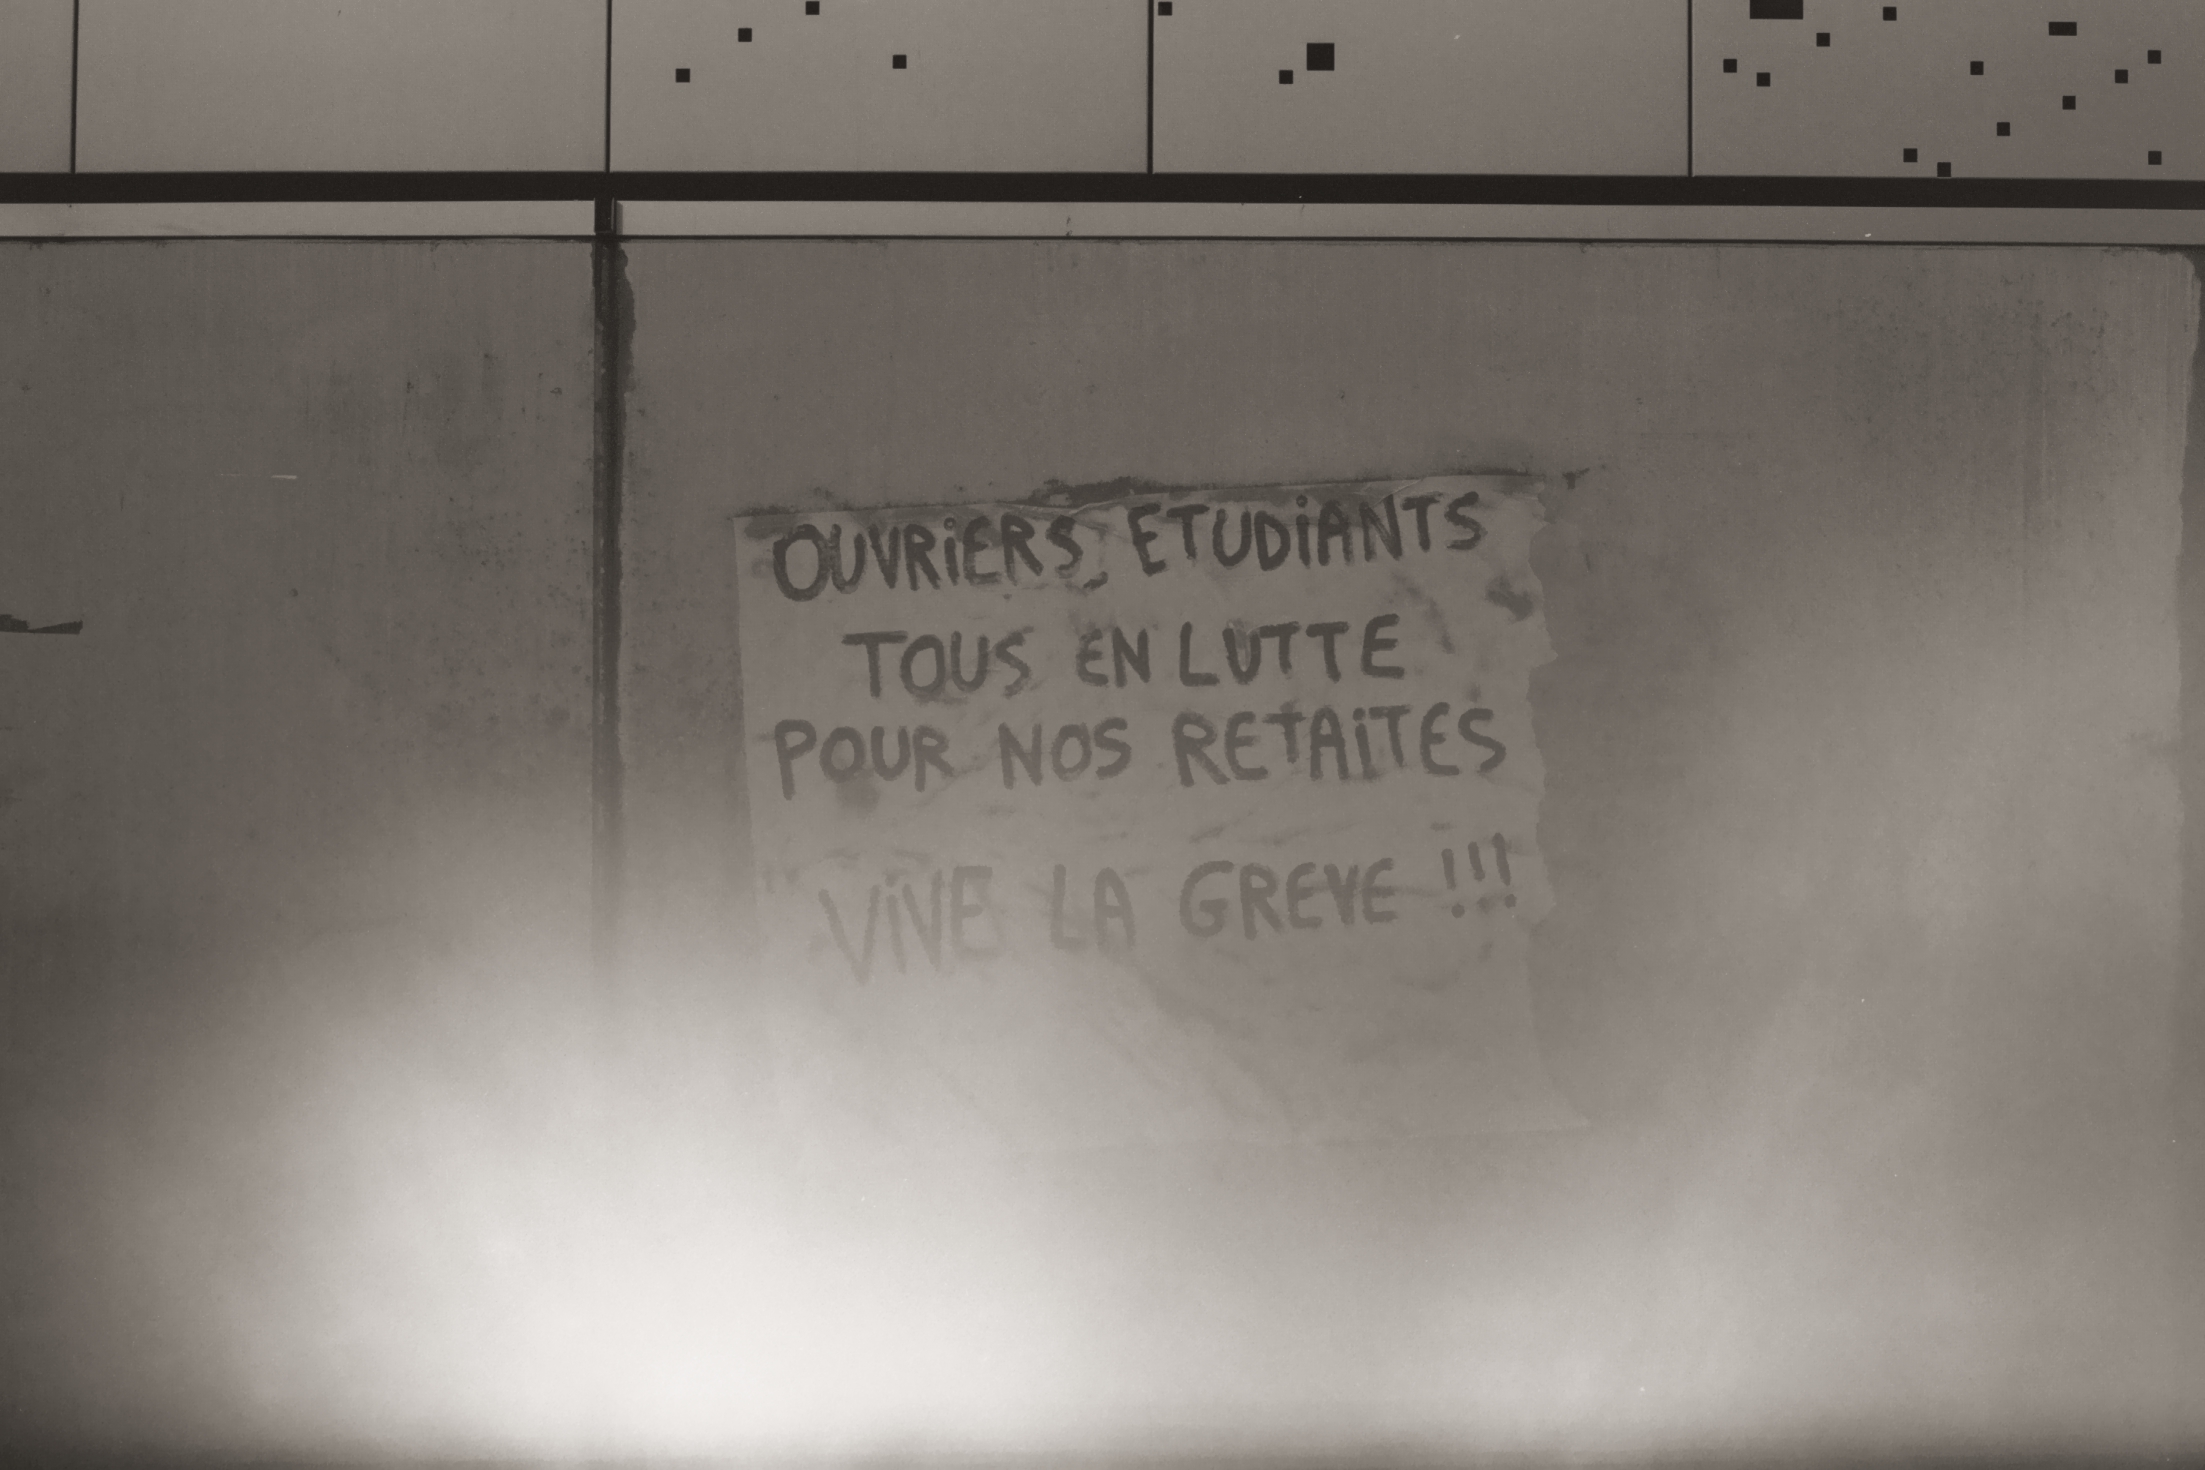 OUVRiERS, ETUDiANTS
TOUS EN LUTTE
POUR NOS RETAiTES
ViVE LA GREVE !!!